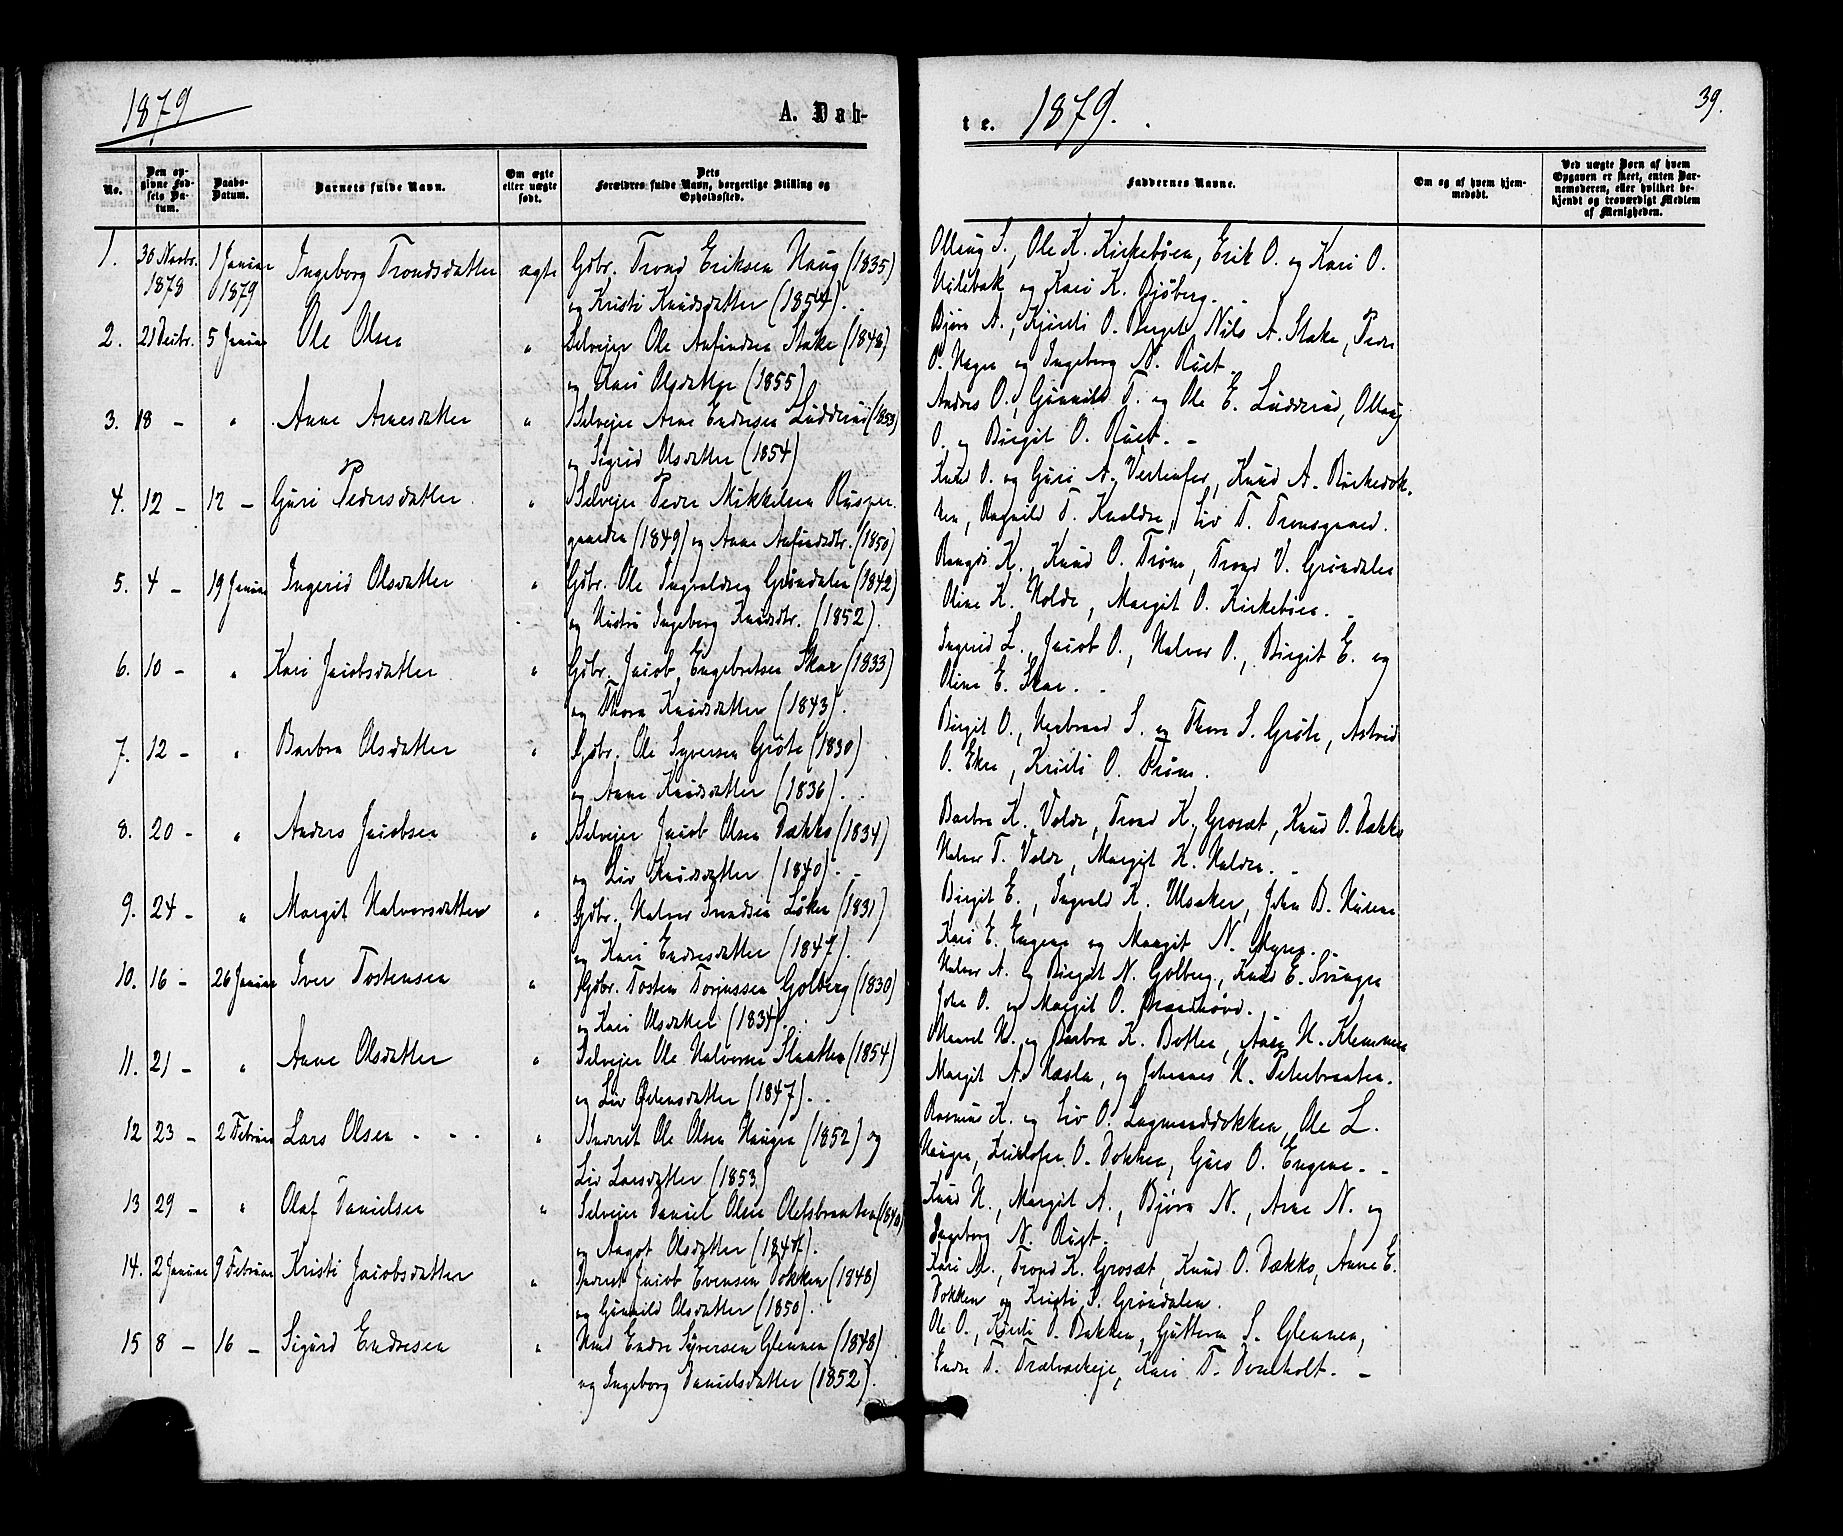 1879
A. Dab-
No.
Den op-
givne Fød-
sels Da-
tum.
Daabs-
Datum.
Barnets fulde Navn.
Om ægte
eller uægte
født.
Dets
Forældres fulde Navn, borgerlige Stilling og
Opholdssted.
1. 30 Novbr. 1 Januar Ingeborg Trondsdatter ægte Gdbr. Trond Eriksen Haug (1835)
1878 1879 og Kristi Knudsdatter (1854).
2. 21 Decbr. 5 Januar Ole Olsen " Selveier Ole Anfindsen Stake (1848)
og Kari Olsdatter (1855)
3. 18 - " Anne Arnesdatter " Selveier Arne Endresen Ludderud (1853)
og Sigrid Olsdatter (1854)
4. 12 - 12 - Guri Pedersdatter " Selveier Peder Mikkelsen Rusper-
(1849) og Anne Anfindsdtr. (1850)
5. 4 - 19 Januar Ingerid Olsdatter " Gdbr. Ole Ingvaldsen Grøndalen (1842)
og Hustru Ingeborg Knudsdtr. (1852).
6. 10 - " Kari Jacobsdatter " Gdbr. Jacob Engebretsen Skar (1833)
og Thora Knudsdatter (1843).
7. 12 - " Barbra Olsdatter " Gdbr. Ole Syversen Grøte (1830)
og Anne Knudsdatter (1836).
8. 20 - " Anders Jacobsen " Selveier Jacob Olsen Dækko (1834)
og Liv Knudsdatter (1840).
9. 24 - " Margit Halvorsdatter " Gdbr. Halvor Svendsen Løken (1831)
og Kari Endresdatter (1847).
10. 16 - 26 Januar Iver Tostensen " Gdbr. Tosten Torjussen Golberg (1830)
og Kari Olsdatter (1834).
11. 21 - " Anne Olsdatter " Selveier Ole Halvorsen Slaatten (1854)
og Liv Østensdatter (1847).
12 23 - 2 Februar Lars Olsen " Inderst Ole Olsen Haugen (1852) og
Liv Larsdatter (1853)
13 29 - " Olaf Danielsen " Selveier Daniel Olsen Olelsbraaten (1840)
og Aagot Olsdatter (1847).
14. 2 Januar 9 Februar Kristi Jacobsdatter " Inderst Jacob Evensen Dokken (1848)
og Gunild Olsdatter (1850).
15 8 - 16 - Sigurd Endresen " Hmd Endre Syversen Glennen (1848)
og Ingeborg Danielsdatter (1852).
te. 1879.
39.
Faddernes Navne.
Om og af hvem hjem-
medøbt.
Ved uægte Børn af hvem
Opgaven er skeet, enten Bar-
nemoderen, eller hvilket be-
kjendt og troværdigt Medlem
af Menigheden.
Olloug S., Ole K. Kirkebøen, Erik O. og Kari O.
og Kari K. Bjøberg.
Bjørn A., Kjersti O. Berget, Nils A. Stake, Peder
P. Hagen og Ingeborg N. Rust
Andres O., Gunnild T. og Ole E. Ludderud, Olloug
O. og Birgit O. Rust.
Knud O. og Guri A. Vestenfor, Knud A. Birkedok-
ken, Ragnild T. Kvelde, Liv T. Trønsgaard.
Rangdi K., Knud O. Trøm, Trond V. Grøndalen
Oline K. Holde, Margit O. Kirkebøen.
Ingerid L., Jacob O., Halvor O., Birgit E. og
Oline E. Skar.
Birgit O., Herbrand S. og Thore S. Grøte, Astrid
O. Ekre, Kristi O. Trøm.
Barbra K. Volde, Trond K. Grosæt, Knud O. Dækko
Halvor T. Volde, Margit K. Halden.
Birgit E., Ingvald K. Ulsaker, John B. Huleni
Kari E. Engene og Margit N. Myren.
Halvor A. og Birgit N. Golberg, Knud E. Svingen
John O. og Margit O. Brandhovd.
og Barbra K. Botten, Aase H. Klemmen
Margit A. Hasla, og Johannes H. Peterbraaten.
Rasmus K. og Liv O. Lagmanddokken, Ole L.
Haugen, Kristofer O. Dokken, Guro O. Engene.
Knud H., Margit A., Bjørn N., Arne N. og
Ingeborg N. Rust.
Kari M., Trond K. Grosæt, Knud O. Dækko, Anne E.
Dokken og Kristi S. Grøndalen.
Ole O., Kristi O. Bakken, Guttorm S. Glennen,
Endre T. Trælvaskeje, Kari T. Tveilholt.